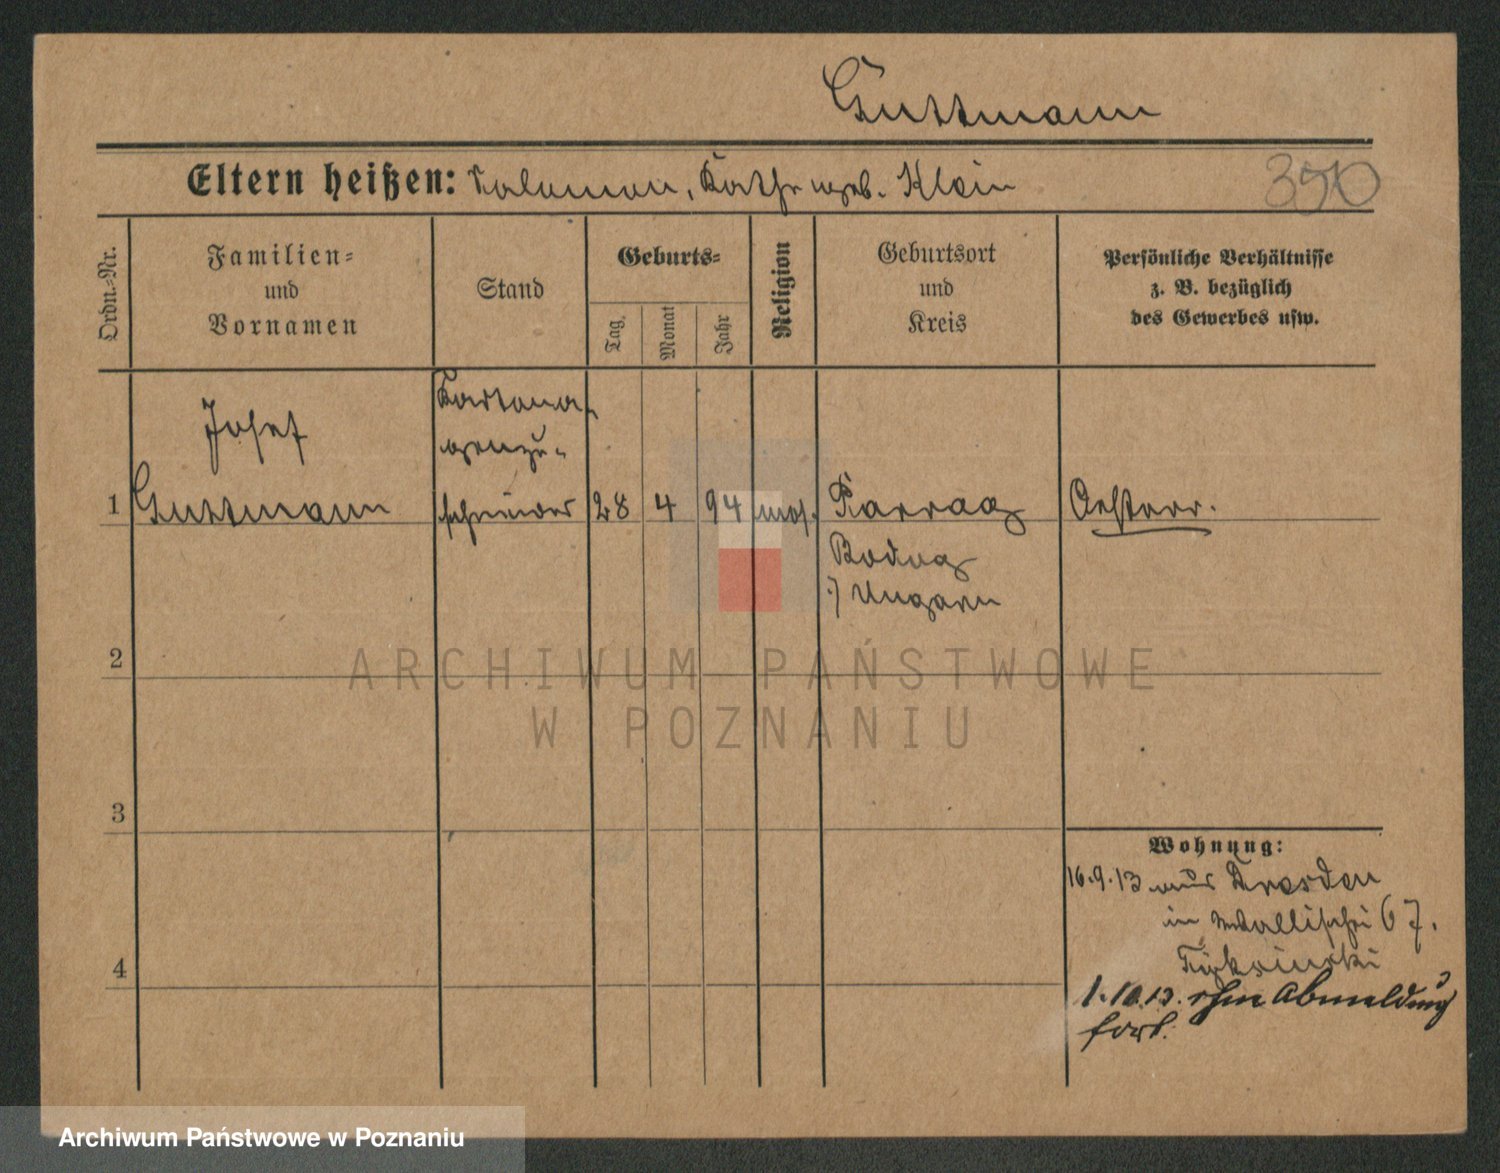 Guttmann
Eltern heißen: Salomon, Kath. geb. Klein
350
Ordn.-Nr.
Familien-
und
Vornamen
Stand
Geburts-
Tag.
Monat
Jahr
Religion
Geburtsort
und
Kreis
Persönliche Verhältnisse
z. B. bezüglich
des Gewerbes usw.
Josef
Kartona-
genzu-
1 Guttmann schneider 28 4 94 mos. Oesterr.
Bodrog
Ungarn
2
ARCHIWUM PAŃSTWOWE
W POZNANIU
3
Wohnung:
16.9.13 aus Dresden
in Wallischei 67.
4
1.10.13. ohne Abmeldung
fort.
Archiwum Państwowe w Poznaniu